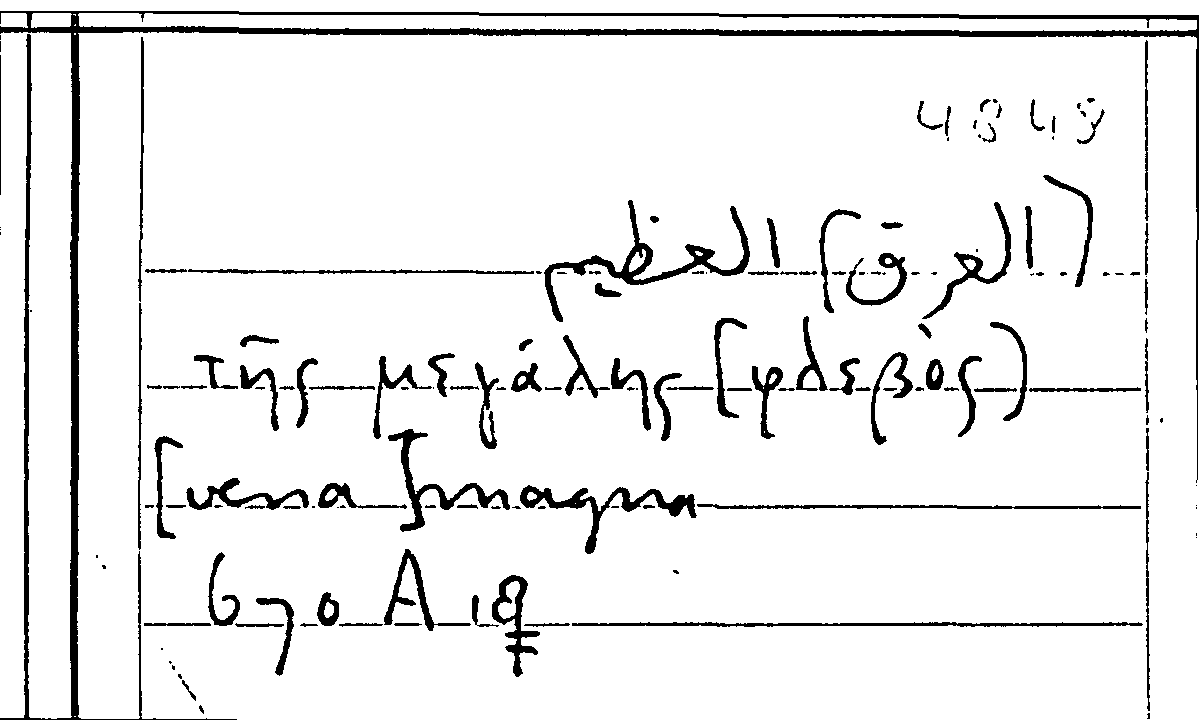 4848
(العرق] العظيم
τῆς μεγάλης [φλεβὸς)
[vena] magna
670 A 18